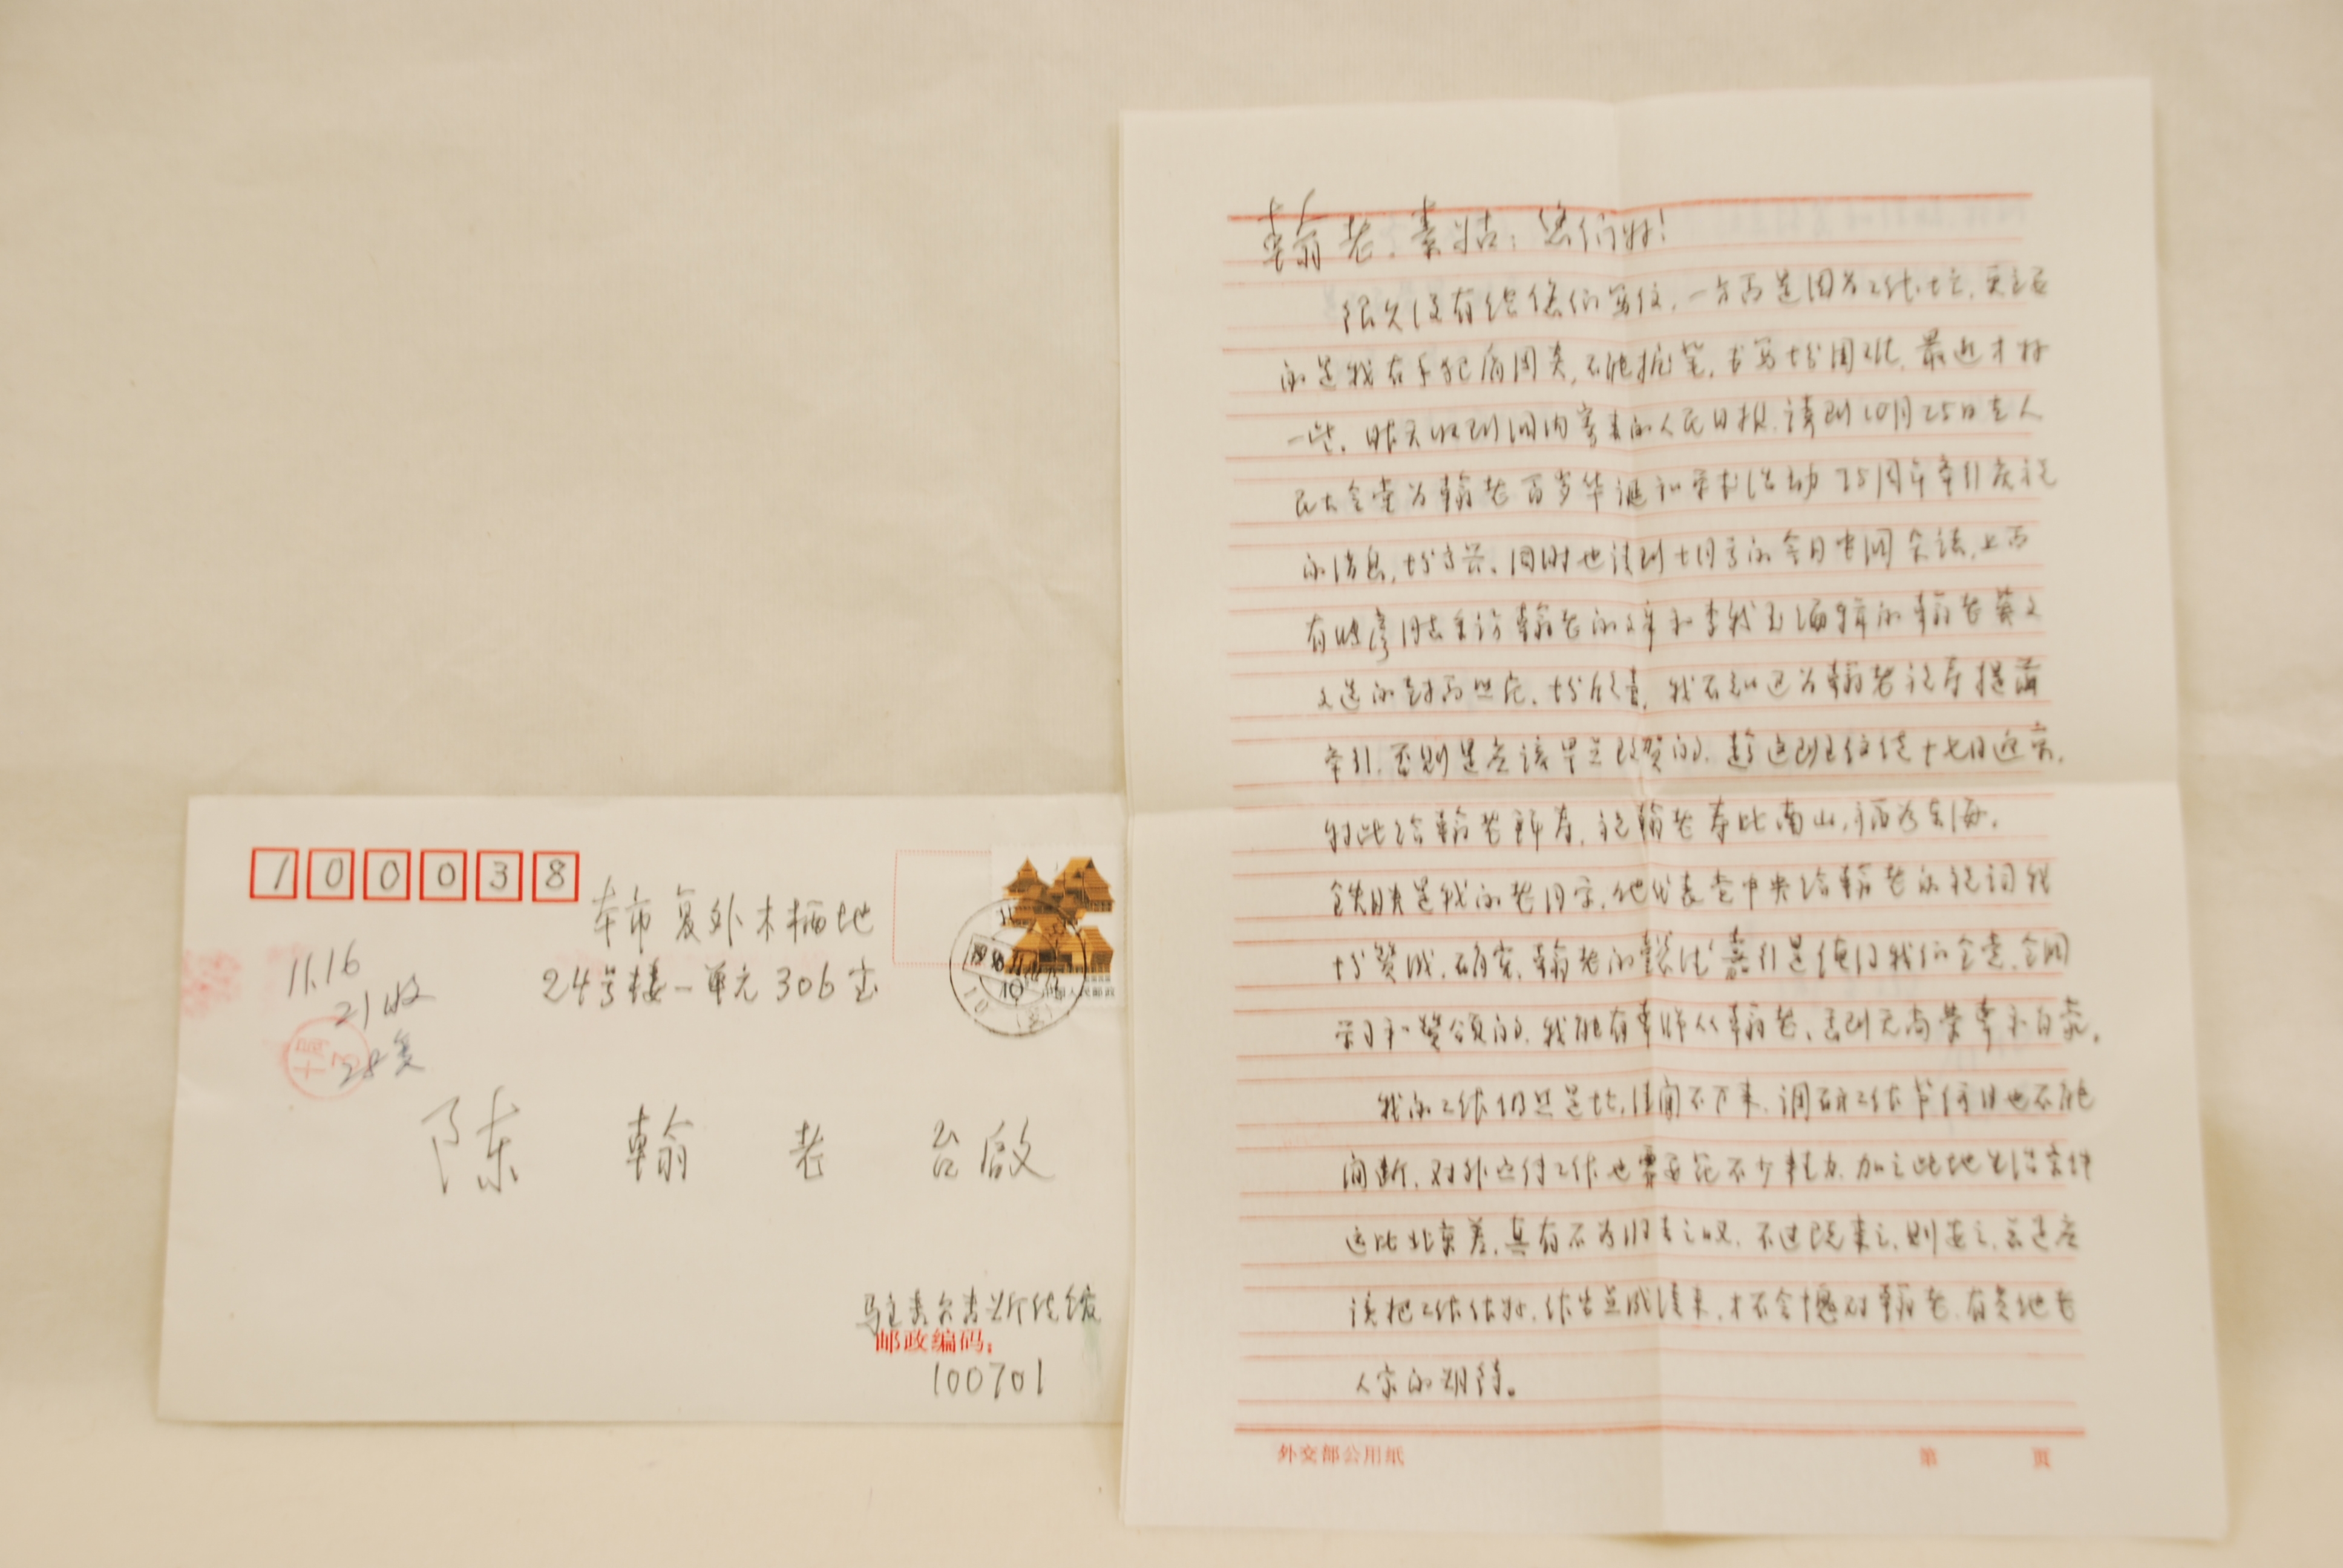 100038
本市复外木樨地
24号楼一单元306室
11.16
21收
28复
陈 翰 老 台启
驻吉尔吉斯使馆
邮政编码：
100701
中国人民邮政
翰老、素姑：您们好！
很久没有给您们写信，一方面是因为工作忙，更主要
的是我右手犯肩周炎，不能握笔，书写十分困难，最近才好
一些。昨天收到国内寄来的人民日报，读到10月25日在人
民大会堂为翰老百岁华诞和学术活动75周年举行庆祝
的消息，十分高兴。同时也读到十月号的今日中国英语，上面
有 同志采访翰老的文章和李我 的翰老英文
文选的封面照片，十分欣喜。我不知道为翰老祝寿提前
举行，否则是应该早些致贺的。趁这次信使十七日返京，
特此给翰老拜寿，祝翰老寿比南山，福如东海。
铁映是我的老同学，他代表党中央给翰老的祝词我
十分赞成。确实，翰老的懿德嘉行是值得我们全党、全国
学习和赞颂的。我能有幸师从翰老，感到无尚荣幸和自豪。
我的工作仍然是忙，清闲不下来，调研工作当何日也不能
间断，对外应付工作也需要花不少精力，加之此地生活条件
远比北京差，真有不如归去之叹。不过既来之，则安之，总是应
该把工作作好，作出些成绩来，才不会愧对翰老、有负他老
人家的期待。
外交部公用纸
第 页